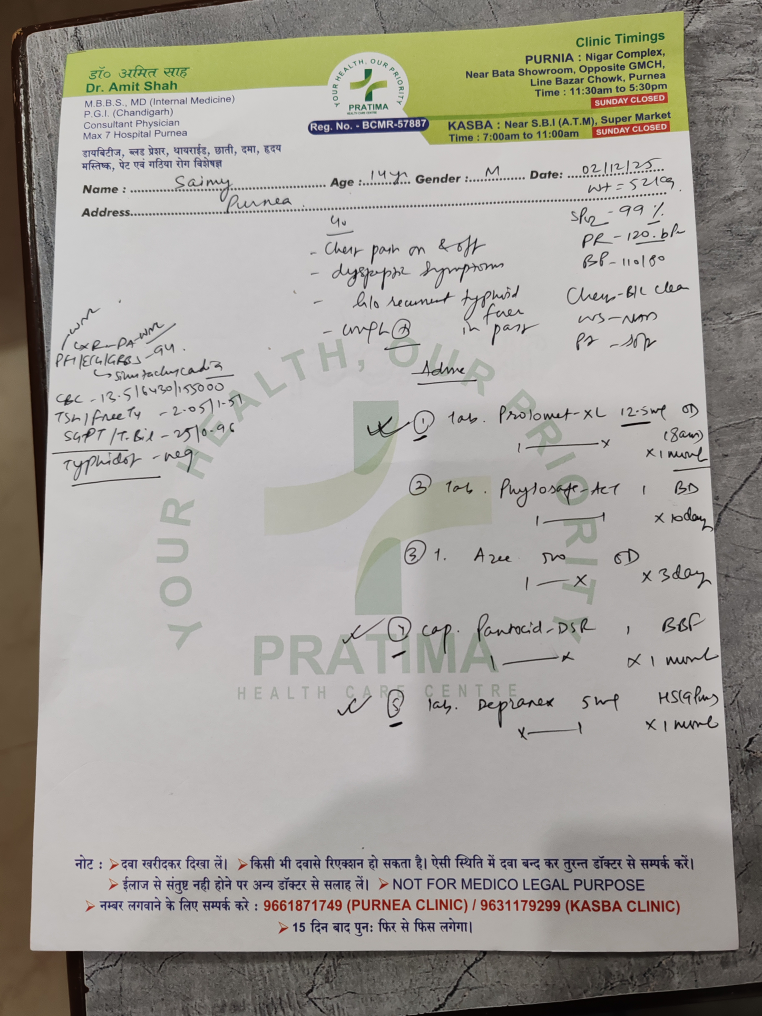 डॉ० अमित साह
Dr. Amit Shah
M.B.B.S., MD (Internal Medicine)
P.G.I. (Chandigarh)
Consultant Physician
Max 7 Hospital Purnea
डायबिटीज, ब्लड प्रेशर, थायराईड, छाती, दमा, हृदय
मस्तिष्क, पेट एवं गठिया रोग विशेषज्ञ
YOUR HEALTH, OUR PRIORITY
PRATIMA
HEALTH CARE CENTRE
Reg. No. - BCMR-57887
Clinic Timings
PURNIA : Nigar Complex,
Near Bata Showroom, Opposite GMCH,
Line Bazar Chowk, Purnea
Time : 11:30am to 5:30pm
SUNDAY CLOSED
KASBA : Near S.B.I (A.T.M), Super Market
Time : 7:00am to 11:00am SUNDAY CLOSED
Name : Saimy Age : 14yr Gender : M Date: 02/12/25
Address. Purnea
wt = 52kg
- Chest pain on & off
- dyspeptic symptoms
- h/o recurrent typhoid
fever
in past
SPO2 - 99%
PR - 120
BP - 110/80
Chest - B/L clear
CXR-PA-WNL
- 94
→ Sinus tachycardia
CBC - 13.5/6430/155000
TSH/free T4 - 2.05/1.51
SGPT/T.Bil - 25/0.96
Typhidot - neg
Advice
① Tab. Prolomet-XL 12.5mg OD
(8am)
1 —— x x 1 month
② Tab. Phytosafe-ACT 1 BD
1 —— 1 x 10day
③ T. Azee 500 OD
1 — x x 3day
④ Cap. Pantocid-DSR 1 BBF
1 —— x x 1 month
⑤ Tab. Depranex 5mg HS(9pm)
x —— 1 x 1 month
YOUR HEALTH, OUR PRIORITY
PRATIMA
HEALTH CARE CENTRE
नोट : ➢ दवा खरीदकर दिखा लें। ➢ किसी भी दवासे रिएक्शन हो सकता है। ऐसी स्थिति में दवा बन्द कर तुरन्त डॉक्टर से सम्पर्क करें।
➢ ईलाज से संतुष्ट नही होने पर अन्य डॉक्टर से सलाह लें। ➢ NOT FOR MEDICO LEGAL PURPOSE
➢ नम्बर लगवाने के लिए सम्पर्क करे : 9661871749 (PURNEA CLINIC) / 9631179299 (KASBA CLINIC)
➢ 15 दिन बाद पुनः फिर से फिस लगेगा।